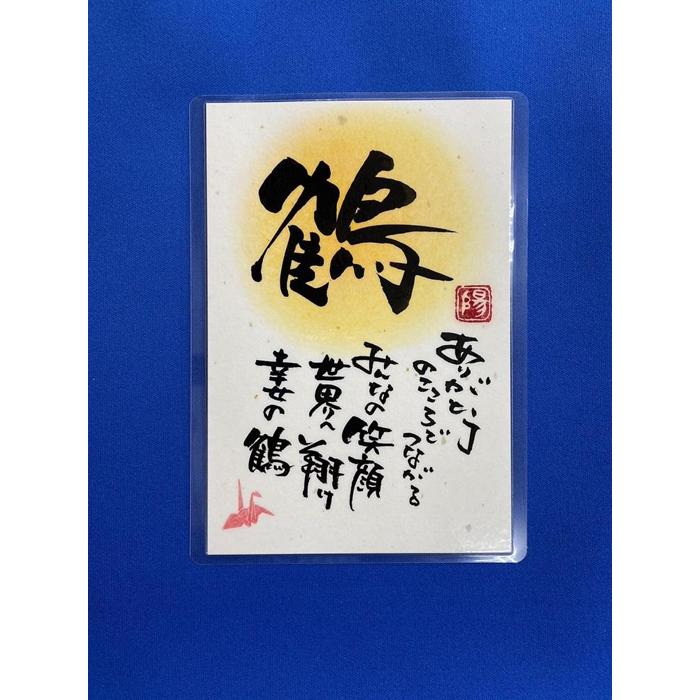 鶴
陽
ありがとう
のこころで
つながる
みんなの笑顔
世界へ翔け
幸せの鶴